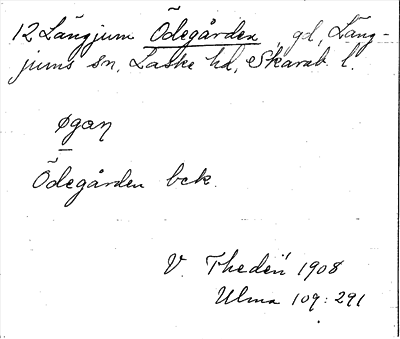 12 Långjum Ödegården, gd, Lång-
jums sn, Laske hd, Skarab. l.
øgaŋ
Ödegården bck.
V. Thedén 1908
Ulma 109:291